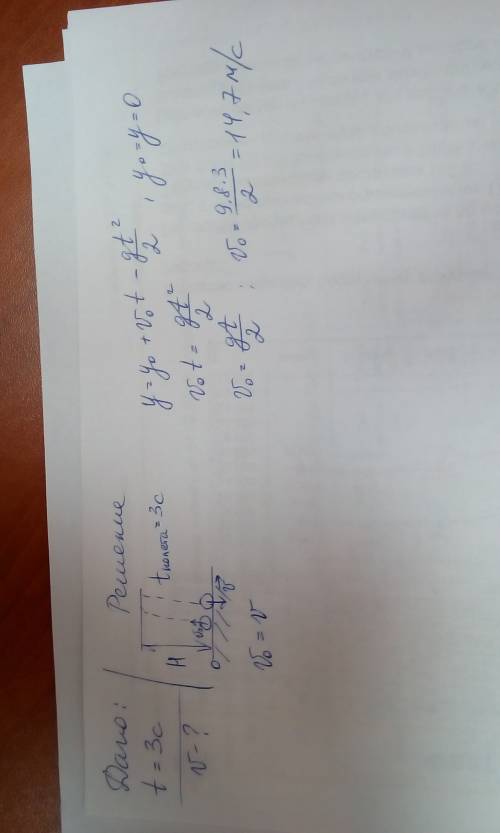 Дано:
t = 3с
v - ?
Решение
H
t полета = 3с
v₀
v
0
v₀ = v
y = y₀ + v₀t - gt²/2 , y₀ = y = 0
v₀t = gt²/2
v₀ = gt/2 ; v₀ = 9.8·3/2 = 14,7 м/с